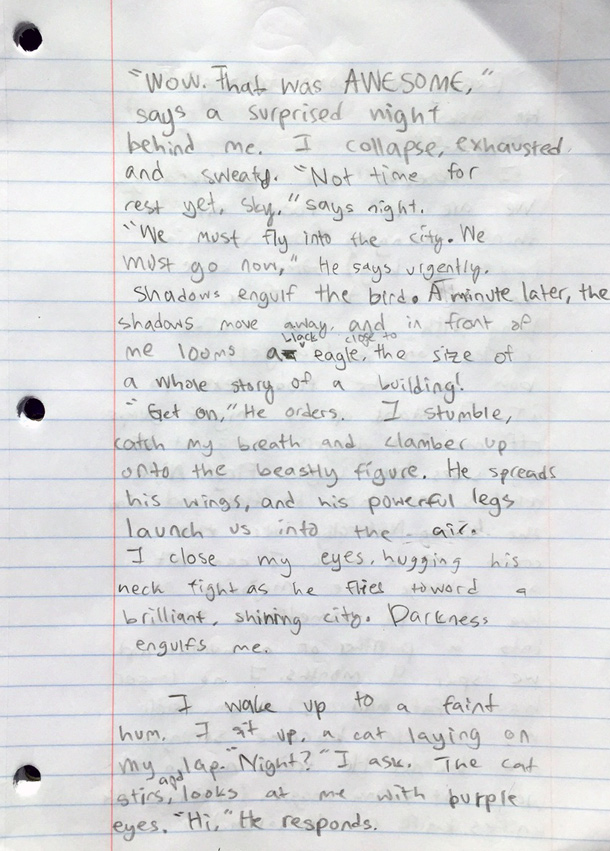 "Wow. That was AWESOME,"
says a surprised night
behind me. I collapse, exhausted
and sweaty. "Not time for
rest yet, sky," says night.
"We must fly into the city. We
must go now," He says urgently.
Shadows engulf the bird. A minute later, the
shadows move away, and in front of
me looms a black eagle, close to the size of
a whole story of a building!
"Get on," He orders. I stumble,
catch my breath and clamber up
onto the beastly figure. He spreads
his wings, and his powerful legs
launch us into the air.
I close my eyes, hugging his
neck tight as he flies toword a
brilliant, shining city. Darkness
engulfs me.
I wake up to a faint
hum. I sit up, a cat laying on
my lap. "Night?" I ask. The cat
stirs, and looks at me with purple
eyes. "Hi," He responds.